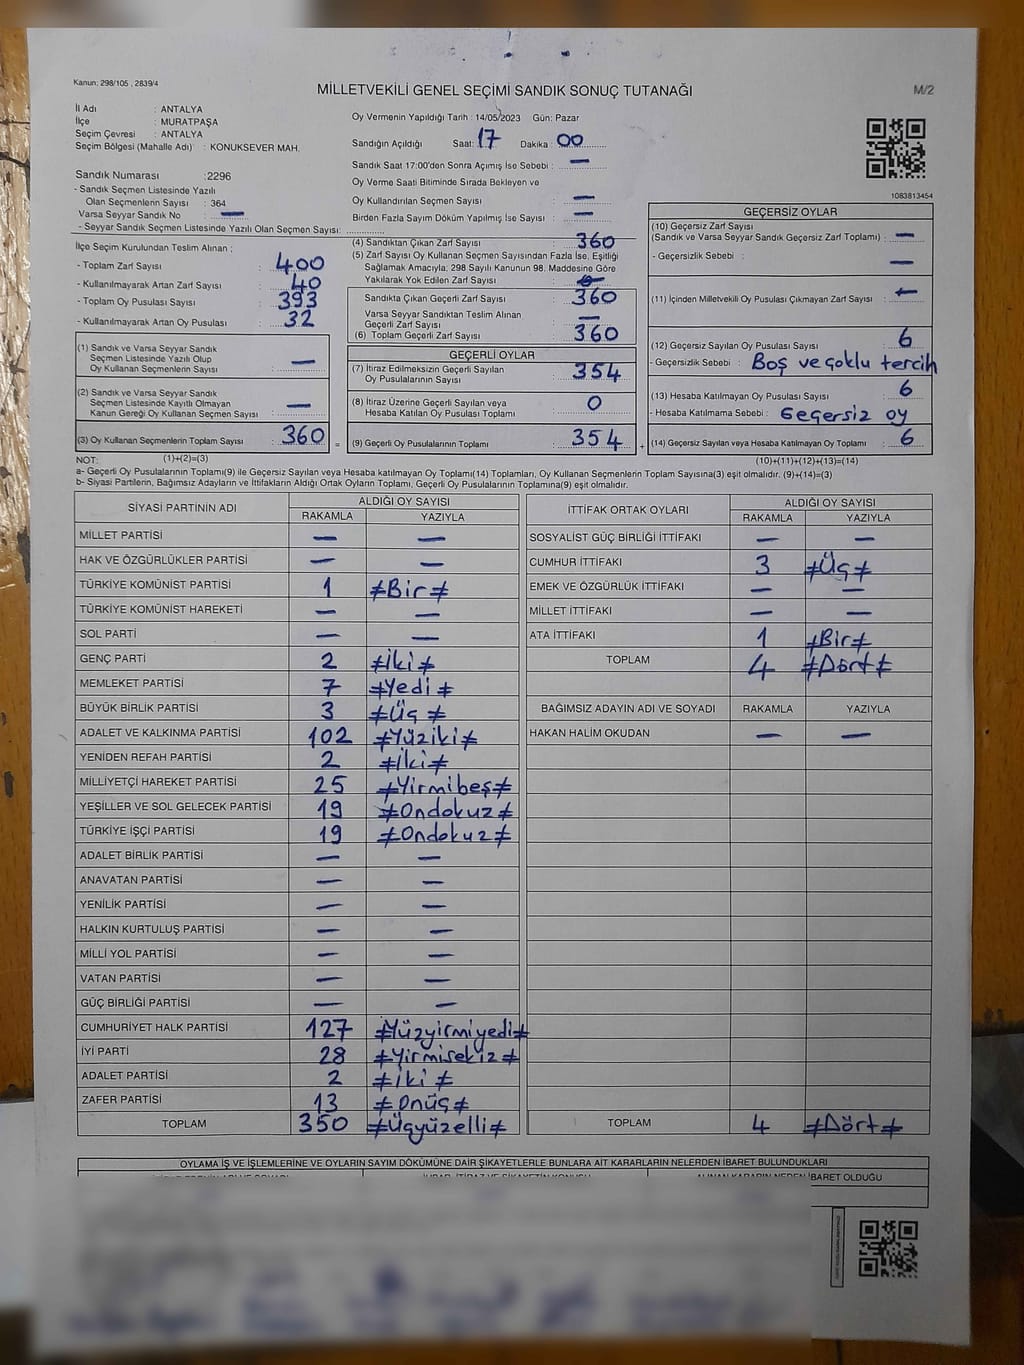 Kanun: 298/105 , 2839/4
MİLLETVEKİLİ GENEL SEÇİMİ SANDIK SONUÇ TUTANAĞI
M/2
İl Adı : ANTALYA
İlçe : MURATPAŞA
Seçim Çevresi : ANTALYA
Seçim Bölgesi (Mahalle Adı) : KONUKSEVER MAH.
Oy Vermenin Yapıldığı Tarih : 14/05/2023 Gün: Pazar
Sandığın Açıldığı Saat: 17 Dakika : 00
Sandık Saat 17:00'den Sonra Açımış İse Sebebi : —
Oy Verme Saati Bitiminde Sırada Bekleyen ve
Oy Kullandırılan Seçmen Sayısı : —
Birden Fazla Sayım Döküm Yapılmış İse Sayısı : —
1083813454
Sandık Numarası : 2296
- Sandık Seçmen Listesinde Yazılı
Olan Seçmenlerin Sayısı : 364
Varsa Seyyar Sandık No : —
- Seyyar Sandık Seçmen Listesinde Yazılı Olan Seçmen Sayısı:
İlçe Seçim Kurulundan Teslim Alınan ;
- Toplam Zarf Sayısı : 400
- Kullanılmayarak Artan Zarf Sayısı : 40
- Toplam Oy Pusulası Sayısı : 393
- Kullanılmayarak Artan Oy Pusulası : 32
(1) Sandık ve Varsa Seyyar Sandık
Seçmen Listesinde Yazılı Olup
Oy Kullanan Seçmenlerin Sayısı : —
(2) Sandık ve Varsa Seyyar Sandık
Seçmen Listesinde Kayıtlı Olmayan
Kanun Gereği Oy Kullanan Seçmen Sayısı : —
(3) Oy Kullanan Seçmenlerin Toplam Sayısı : 360 =
(1)+(2)=(3)
(4) Sandıktan Çıkan Zarf Sayısı : 360
(5) Zarf Sayısı Oy Kullanan Seçmen Sayısından Fazla İse, Eşitliği
Sağlamak Amacıyla; 298 Sayılı Kanunun 98. Maddesine Göre
Yakılarak Yok Edilen Zarf Sayısı :
Sandıkta Çıkan Geçerli Zarf Sayısı : 360
Varsa Seyyar Sandıktan Teslim Alınan
Geçerli Zarf Sayısı : —
(6) Toplam Geçerli Zarf Sayısı : 360
GEÇERLİ OYLAR
(7) İtiraz Edilmeksizin Geçerli Sayılan
Oy Pusulalarının Sayısı : 354
(8) İtiraz Üzerine Geçerli Sayılan veya
Hesaba Katılan Oy Pusulası Toplamı : 0
(9) Geçerli Oy Pusulalarının Toplamı : 354 +
GEÇERSİZ OYLAR
(10) Geçersiz Zarf Sayısı
(Sandık ve Varsa Seyyar Sandık Geçersiz Zarf Toplamı) : —
- Geçersizlik Sebebi : —
(11) İçinden Milletvekili Oy Pusulası Çıkmayan Zarf Sayısı : —
(12) Geçersiz Sayılan Oy Pusulası Sayısı : 6
- Geçersizlik Sebebi : Boş ve çoklu tercih
(13) Hesaba Katılmayan Oy Pusulası Sayısı : 6
- Hesaba Katılmama Sebebi : Geçersiz oy
(14) Geçersiz Sayılan veya Hesaba Katılmayan Oy Toplamı : 6
(10)+(11)+(12)+(13)=(14)
NOT:
a- Geçerli Oy Pusulalarının Toplamı(9) ile Geçersiz Sayılan veya Hesaba katılmayan Oy Toplamı(14) Toplamları, Oy Kullanan Seçmenlerin Toplam Sayısına(3) eşit olmalıdır. (9)+(14)=(3)
b- Siyasi Partilerin, Bağımsız Adayların ve İttifakların Aldığı Ortak Oyların Toplamı, Geçerli Oy Pusulalarının Toplamına(9) eşit olmalıdır.
SİYASİ PARTİNİN ADI ALDIĞI OY SAYISI
RAKAMLA YAZIYLA
MİLLET PARTİSİ — —
HAK VE ÖZGÜRLÜKLER PARTİSİ — —
TÜRKİYE KOMÜNİST PARTİSİ 1 ≠Bir≠
TÜRKİYE KOMÜNİST HAREKETİ — —
SOL PARTİ — —
GENÇ PARTİ 2 ≠İki≠
MEMLEKET PARTİSİ 7 ≠Yedi≠
BÜYÜK BİRLİK PARTİSİ 3 ≠Üç≠
ADALET VE KALKINMA PARTİSİ 102 ≠Yüziki≠
YENİDEN REFAH PARTİSİ 2 ≠İki≠
MİLLİYETÇİ HAREKET PARTİSİ 25 ≠Yirmibeş≠
YEŞİLLER VE SOL GELECEK PARTİSİ 19 ≠Ondokuz≠
TÜRKİYE İŞÇİ PARTİSİ 19 ≠Ondokuz≠
ADALET BİRLİK PARTİSİ — —
ANAVATAN PARTİSİ — —
YENİLİK PARTİSİ — —
HALKIN KURTULUŞ PARTİSİ — —
MİLLİ YOL PARTİSİ — —
VATAN PARTİSİ — —
GÜÇ BİRLİĞİ PARTİSİ — —
CUMHURİYET HALK PARTİSİ 127 ≠Yüzyirmiyedi≠
İYİ PARTİ 28 ≠Yirmisekiz≠
ADALET PARTİSİ 2 ≠İki≠
ZAFER PARTİSİ 13 ≠Onüç≠
TOPLAM 350 ≠Üçyüzelli≠
İTTİFAK ORTAK OYLARI ALDIĞI OY SAYISI
RAKAMLA YAZIYLA
SOSYALİST GÜÇ BİRLİĞİ İTTİFAKI — —
CUMHUR İTTİFAKI 3 ≠Üç≠
EMEK VE ÖZGÜRLÜK İTTİFAKI — —
MİLLET İTTİFAKI — —
ATA İTTİFAKI 1 ≠Bir≠
TOPLAM 4 ≠Dört≠
BAĞIMSIZ ADAYIN ADI VE SOYADI RAKAMLA YAZIYLA
HAKAN HALİM OKUDAN — —
TOPLAM 4 ≠Dört≠
OYLAMA İŞ VE İŞLEMLERİNE VE OYLARIN SAYIM DÖKÜMÜNE DAİR ŞİKAYETLERLE BUNLARA AİT KARARLARIN NELERDEN İBARET BULUNDUKLARI
İBARET OLDUĞU